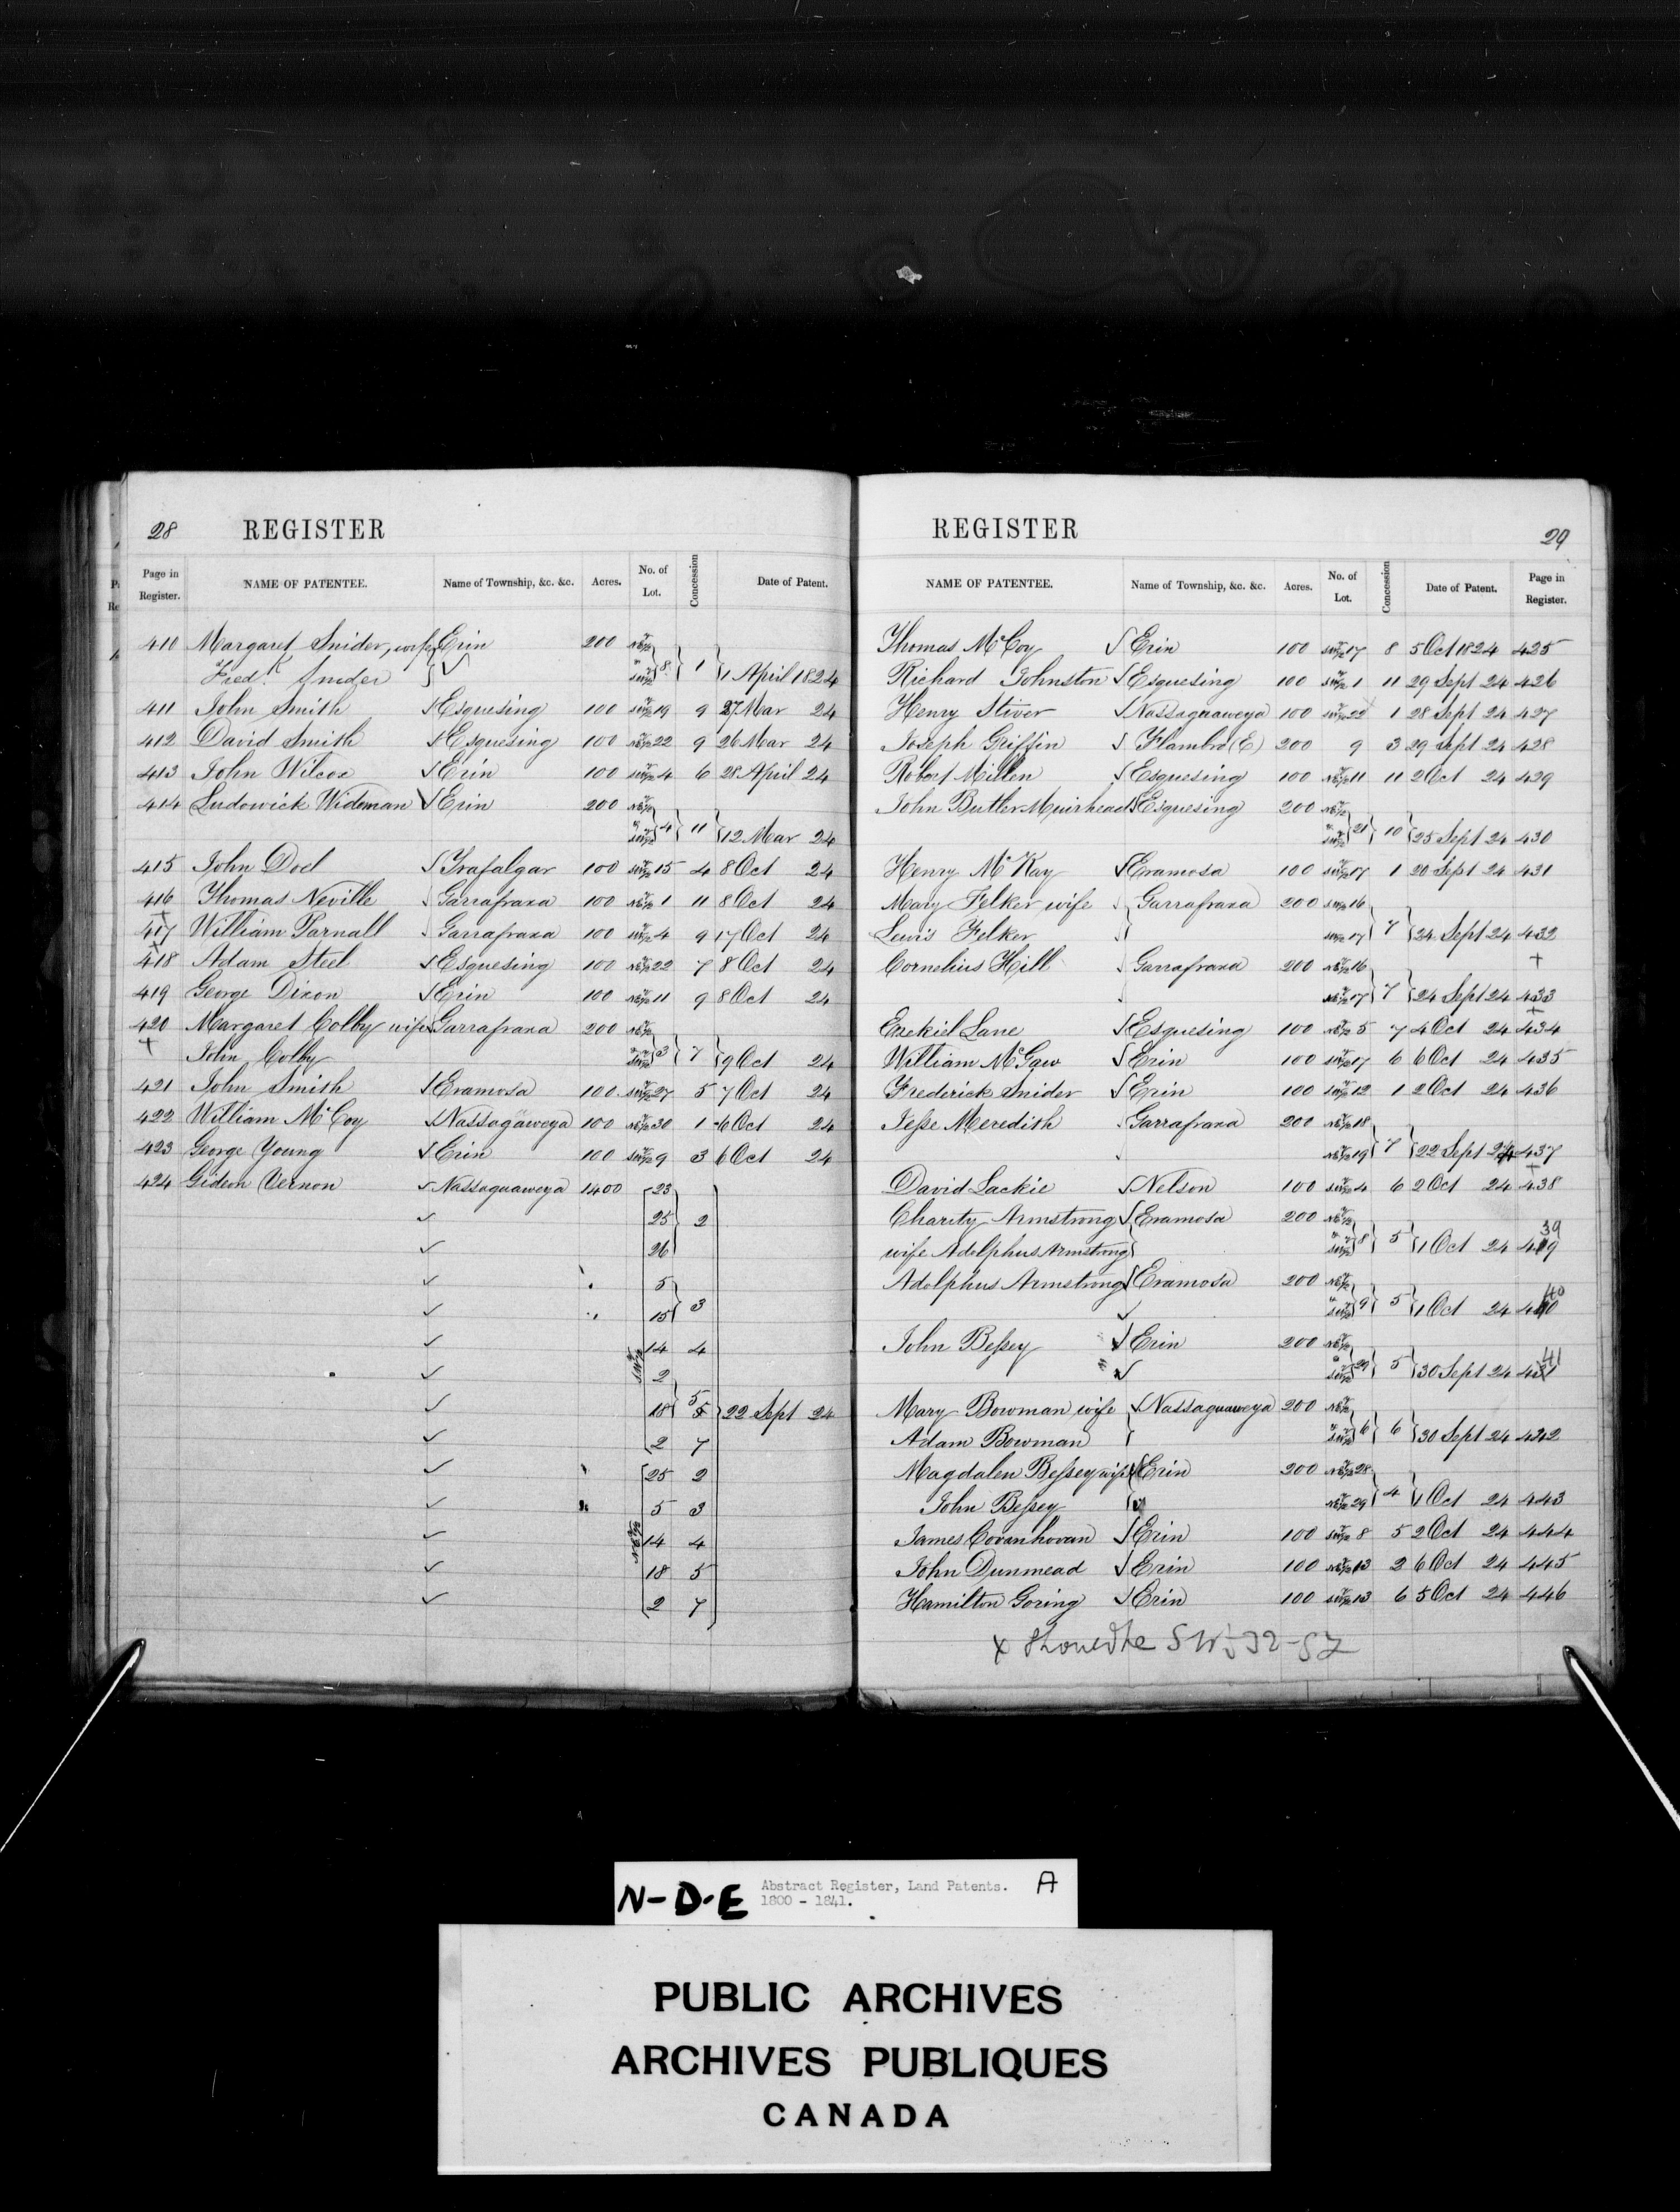 28 REGISTER
Page in Register. NAME OF PATENTEE. Name of Township, &c. &c. Acres. No. of Lot. Concession Date of Patent.
410 Margaret Snider, wife Erin 200 NE½
Fred.k Snider ✓ " SW½ 8 1 1 April 1824
411 John Smith ✓ Esquesing 100 SW½ 19 9 27 Mar 24
412 David Smith ✓ Esquesing 100 NE½ 22 9 26 Mar 24
413 John Wilcox ✓ Erin 100 SW½ 4 6 28 April 24
414 Ludowick Wideman ✓ Erin 200 NE½
" SW½ 4 11 12 Mar 24
415 John Doel ✓ Trafalgar 100 SW½ 15 4 8 Oct 24
416 Thomas Neville Garrafraxa 100 NE½ 1 11 8 Oct 24
+
417 William Parnall Garrafraxa 100 SW½ 4 9 17 Oct 24
+
418 Adam Steel ✓ Esquesing 100 NE½ 22 7 8 Oct 24
419 George Dixon ✓ Erin 100 NE½ 11 9 8 Oct 24
420 Margaret Colby wife Garrafraxa 200 NE½
+ John Colby " SW½ 3 7 9 Oct 24
421 John Smith ✓ Eramosa 100 SW½ 27 5 7 Oct 24
422 William McCoy ✓ Nassagaweya 100 NE½ 30 1 6 Oct 24
423 George Young ✓ Erin 100 SW½ 9 3 6 Oct 24
424 Gideon Vernon ✓ Nassaguaweya 1400 23
✓ 25 2
✓ 26
✓ 5
✓ 15 3
✓ SW½ 14 4
✓ 2
✓ 18 5 22 Sept 24
✓ 2 7
✓ 25 2
✓ 5 3
✓ NE½ 14 4
✓ 18 5
✓ 2 7
REGISTER 29
NAME OF PATENTEE. Name of Township, &c. &c. Acres. No. of Lot. Concession Date of Patent. Page in Register.
Thomas McCoy ✓ Erin 100 SW½ 17 8 5 Oct 1824 425
Richard Johnston ✓ Esquesing 100 SW½ 1 11 29 Sept 24 426
Henry Stiver ✓ Nassaguaweya 100 SW½ 22 1 28 Sept 24 427
Joseph Griffin ✓ Flambro (E) 200 9 3 29 Sept 24 428
Robert Millen ✓ Esquesing 100 NE½ 11 11 2 Oct 24 429
John Butler Muirhead ✓ Esquesing 200 NE½
" SW½ 21 10 25 Sept 24 430
Henry McKay ✓ Eramosa 100 SW½ 17 1 20 Sept 24 431
Mary Felker wife Garrafraxa 200 SW½ 16
Lewis Felker SW½ 17 7 24 Sept 24 432
Cornelius Hill Garrafraxa 200 NE½ 16 +
NE½ 17 7 24 Sept 24 433
+
Ezekiel Lane ✓ Esquesing 100 NE½ 5 7 4 Oct 24 434
William McGaw ✓ Erin 100 SW½ 17 6 6 Oct 24 435
Frederick Snider ✓ Erin 100 SW½ 12 1 2 Oct 24 436
Jesse Meredith Garrafraxa 200 NE½ 18
NE½ 19 7 22 Sept 24 437
+
David Lackie ✓ Nelson 100 SW½ 4 6 2 Oct 24 438
Charity Armstrong ✓ Eramosa 200 NE½
wife Adolphus Armstrong " SW½ 8 5 1 Oct 24 439
Adolphus Armstrong ✓ Eramosa 200 NE½
✓ " SW½ 9 5 1 Oct 24 440
John Bessey ✓ Erin 200 NE½
" ✓ " SW½ 29 5 30 Sept 24 441
Mary Bowman wife ✓ Nassaguaweya 200 NE½
Adam Bowman " SW½ 6 6 30 Sept 24 442
Magdalen Bessey wife ✓ Erin 200 NE½ 28
John Bessey NE½ 29 4 1 Oct 24 443
James Covanhovan ✓ Erin 100 SW½ 8 5 2 Oct 24 444
John Dunmead ✓ Erin 100 NE½ 13 2 6 Oct 24 445
Hamilton Goring ✓ Erin 100 SW½ 13 6 5 Oct 24 446
x Should be SW½ 32
N-D-E Abstract Register, Land Patents. A
1800 - 1841.
PUBLIC ARCHIVES
ARCHIVES PUBLIQUES
CANADA